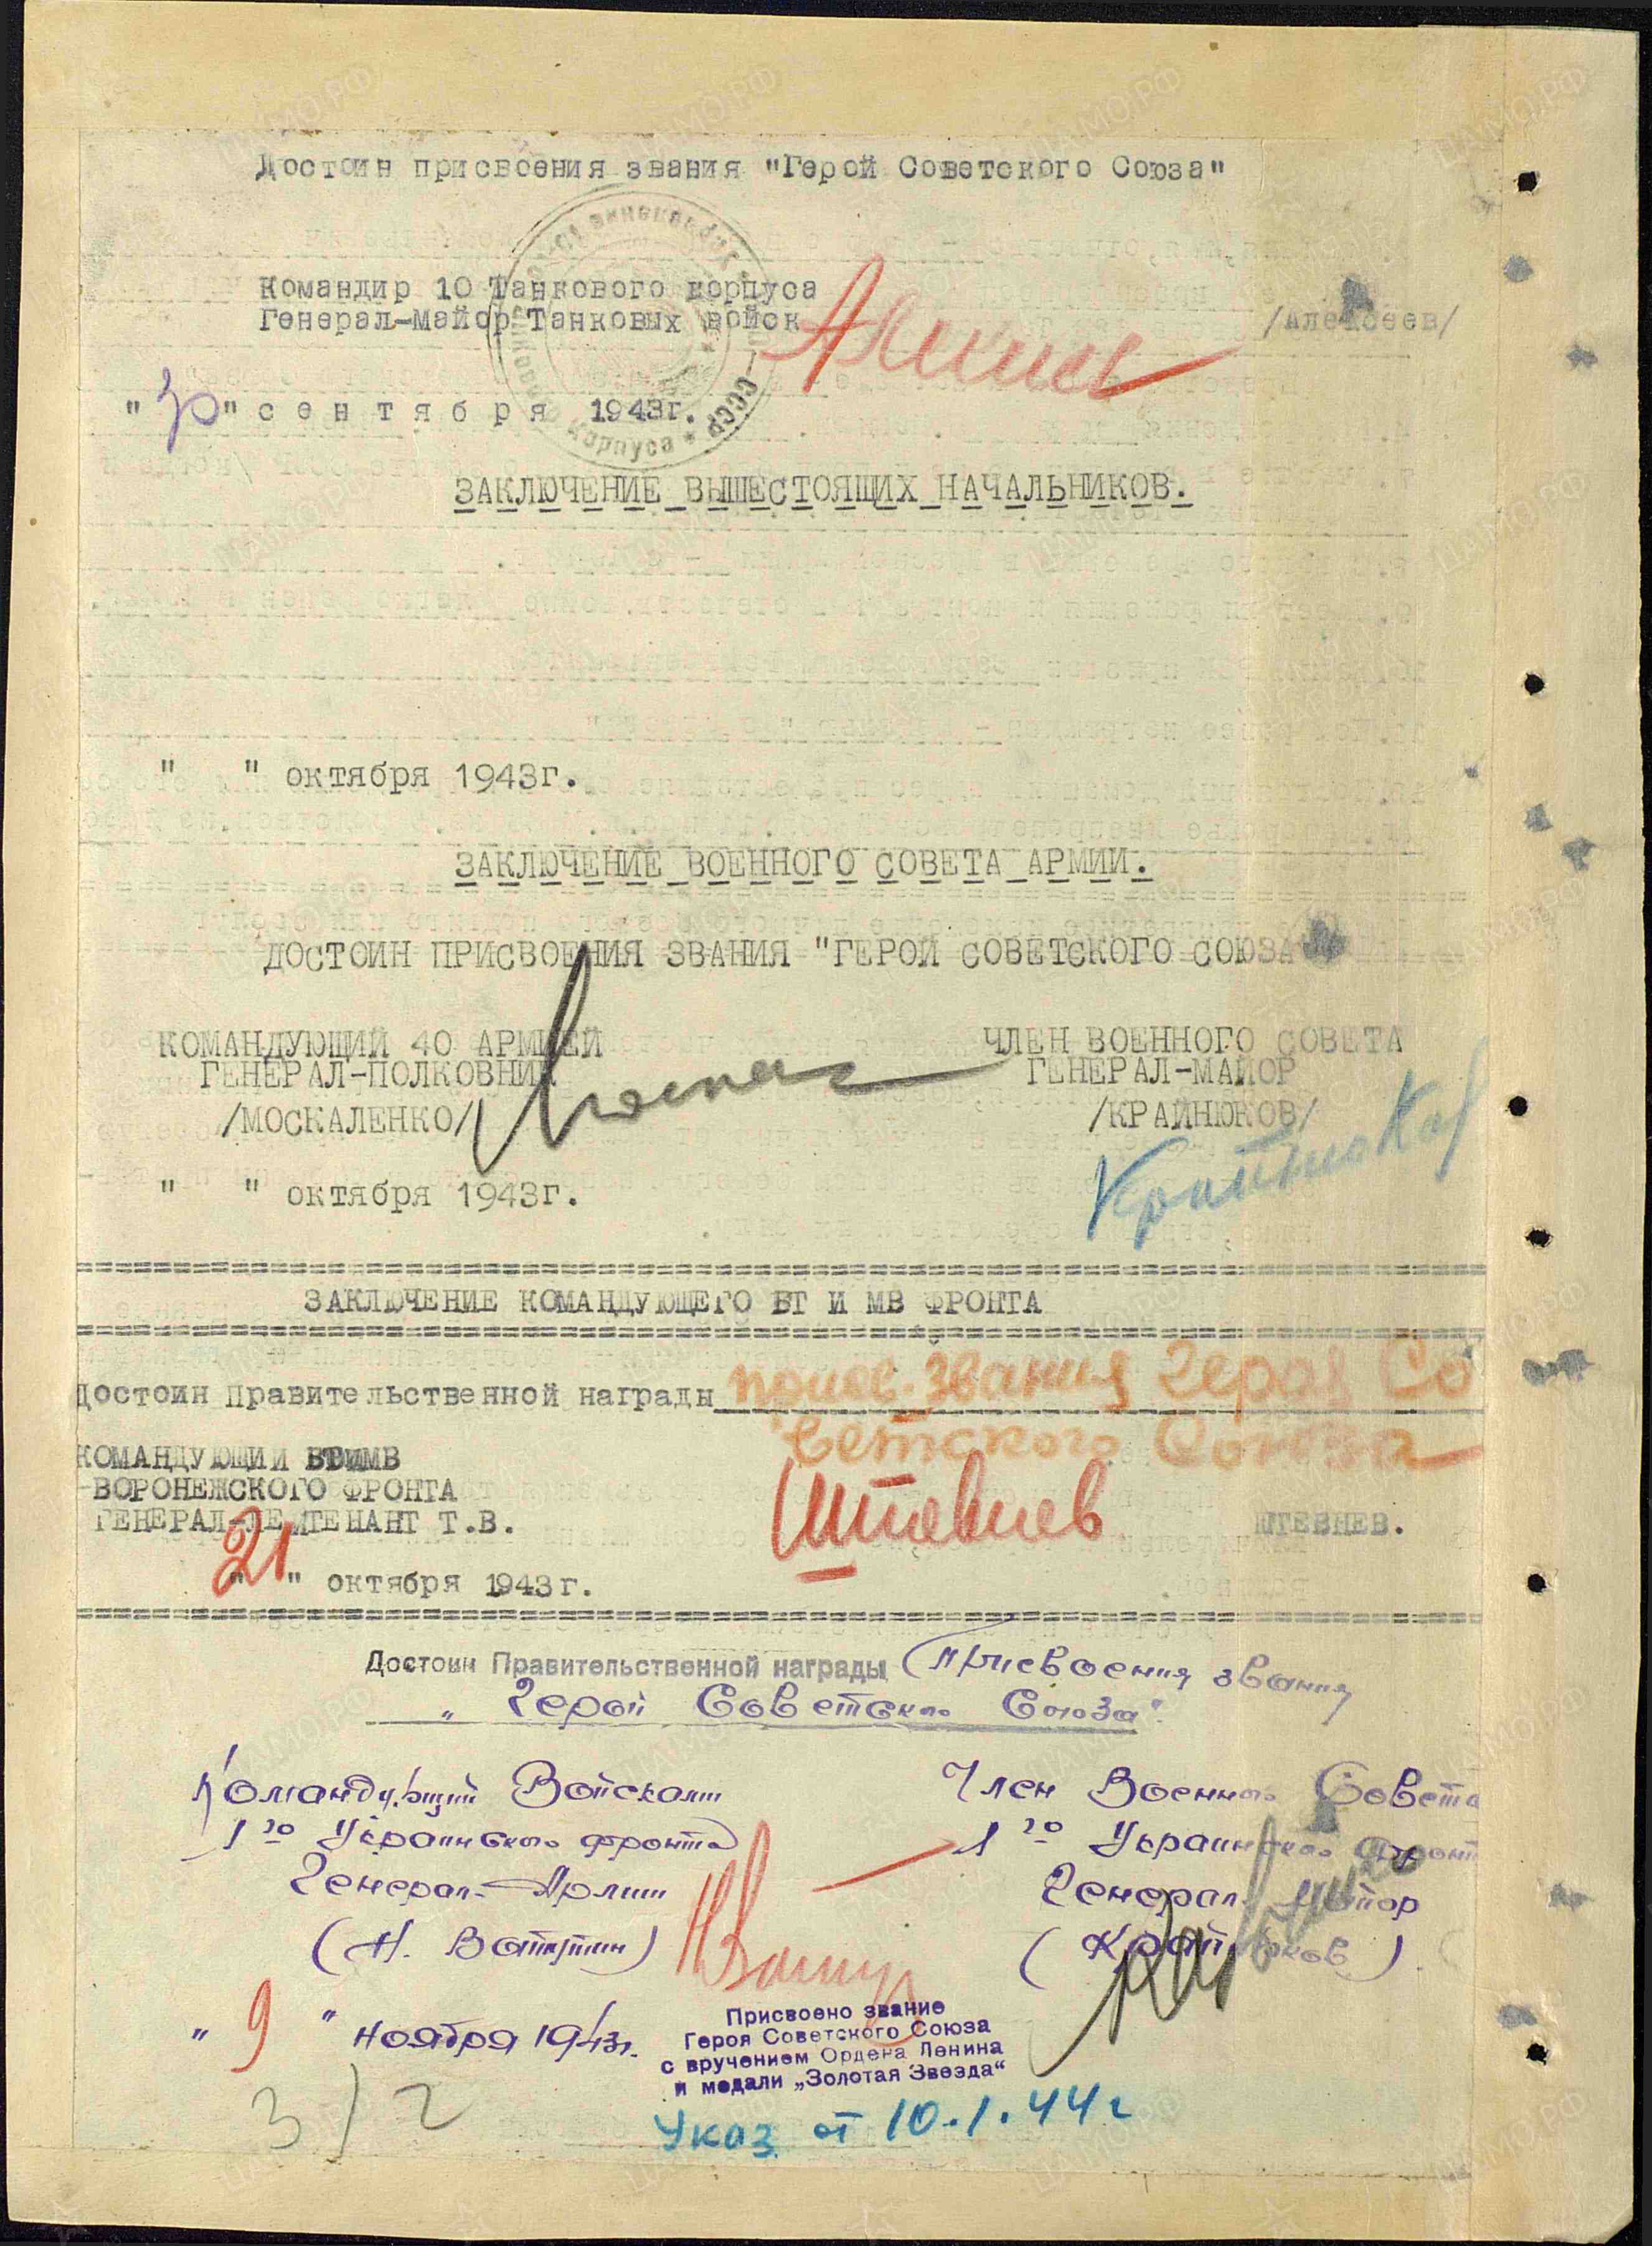 Достоин присвоения звания "Герой Советского Союза"
Командир 10 Танкового корпуса
Генерал-майор Танковых войск /Алексеев/
"30" сентября 1943г.
корпуса * СССР
ЗАКЛЮЧЕНИЕ ВЫШЕСТОЯЩИХ НАЧАЛЬНИКОВ.
" " октября 1943г.
ЗАКЛЮЧЕНИЕ ВОЕННОГО СОВЕТА АРМИИ.
ДОСТОИН ПРИСВОЕНИЯ ЗВАНИЯ "ГЕРОЙ СОВЕТСКОГО СОЮЗА
КОМАНДУЮЩИЙ 40 АРМИЕЙ ЧЛЕН ВОЕННОГО СОВЕТА
ГЕНЕРАЛ-ПОЛКОВНИК ГЕНЕРАЛ-МАЙОР
/МОСКАЛЕНКО/ /КРАЙНЮКОВ/
Крайнюков
" " октября 1943г.
ЗАКЛЮЧЕНИЕ КОМАНДУЮЩЕГО БТ И МВ ФРОНТА
Достоин Правительственной награды присв. звания Героя Со
ветского Союза
КОМАНДУЮЩИЙ БТиМВ
ВОРОНЕЖСКОГО ФРОНТА
ГЕНЕРАЛ-ЛЕЙТЕНАНТ Т.В. Штевнев ШТЕВНЕВ.
21 " октября 1943г.
Достоин Правительственной награды (присвоения звания
"Герой Советского Союза".
Командующий Войсками Член Военного Совета
1го Украинского фронта 1го Украинского фронт
Генерал-Армии Генерал-Майор
(Н. Ватутин) (Крайнюков)
"9" ноября 1943г.
Присвоено звание
Героя Советского Союза
с вручением Ордена Ленина
и медали „Золотая Звезда“
Указ от 10.1.44г
3/2
ЦАМО.РФ